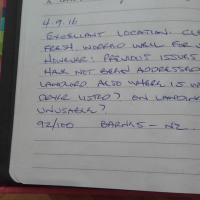 4.9.16
EXCELLANT LOCATION. CLE
FRESH. WORKED WELL FOR U
HOWEVER: PREVIOUS ISSUES
HAVE NOT BEEN ADDRESSED
LANDLORD ALSO WHERE IS W
DRYER LISTED? ON LANDING
UNUSABLE?
92/100 BARNES - NZ.